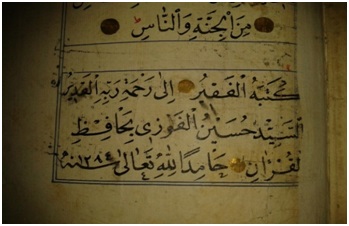 مِنَ الْجِنَّةِ وَالنَّاسِ
كَتَبَهُ الْفَقِيرُ اِلٰى رَحْمَةِ رَبِّهِ الْقَدِيرِ
السَّيِّدْ حُسَيْنُ الْفَوْزِى بِحَافِظِ
الْقُرْاٰنِ حَامِدًا لِلّٰهِ تَعَالٰى سنه ١٢٨٤